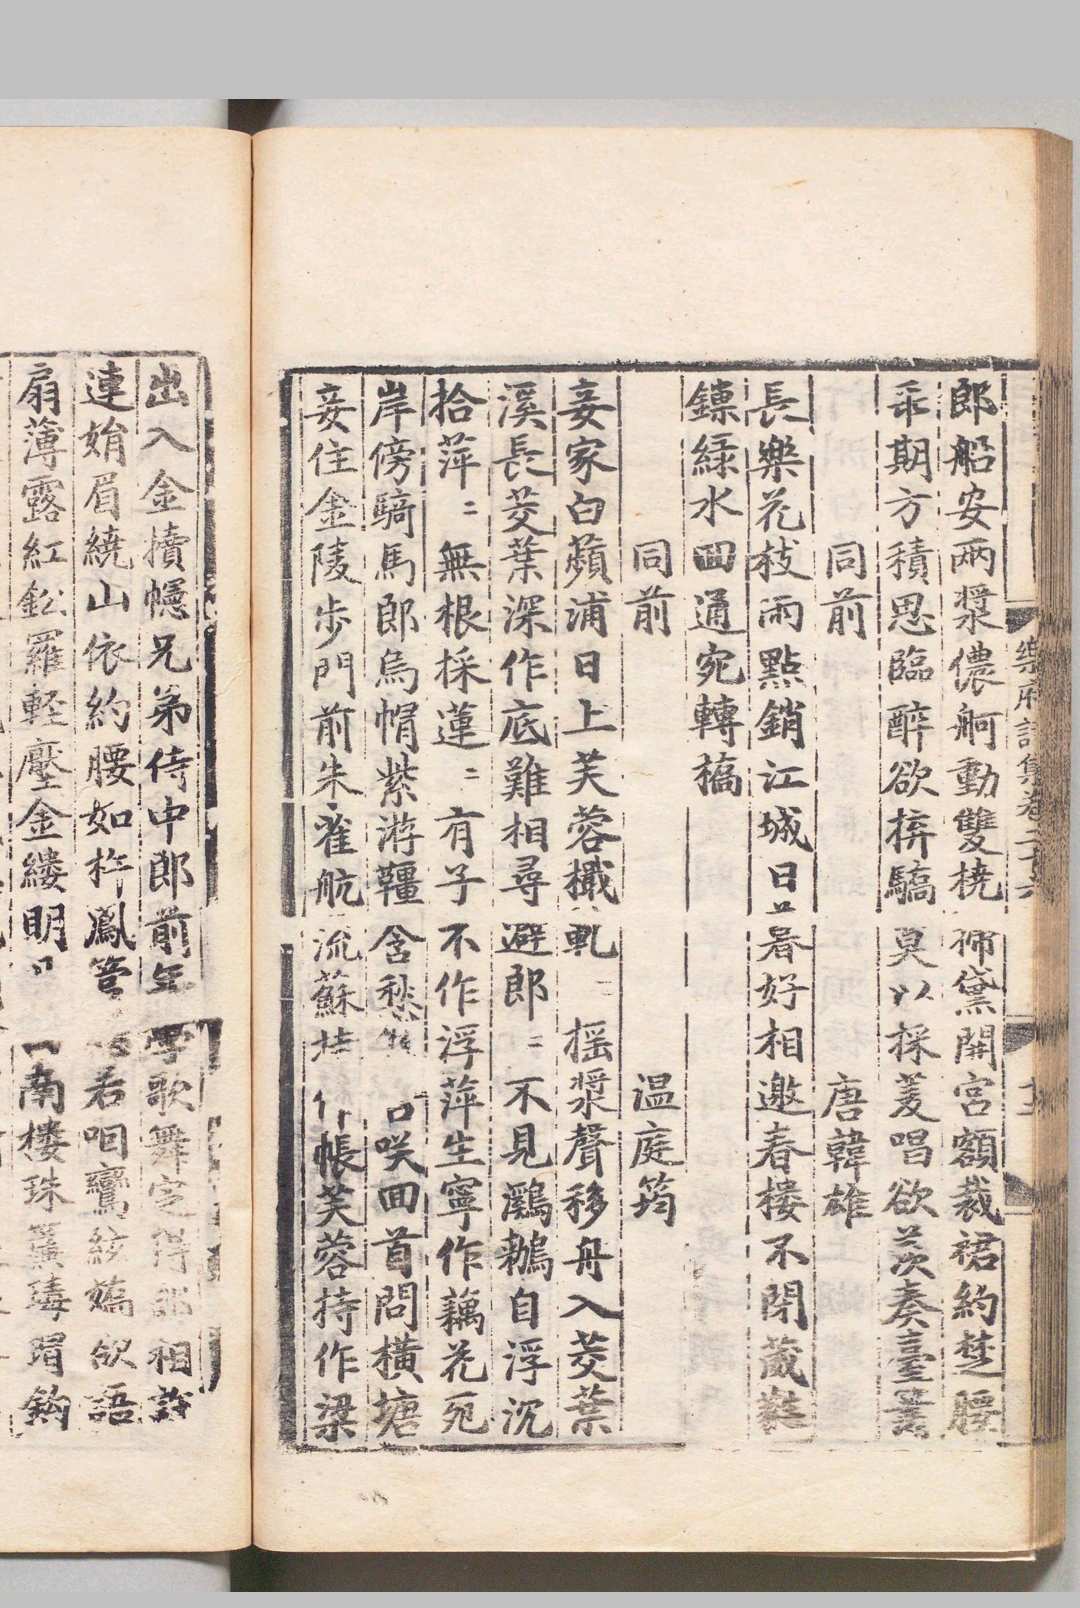 樂府詩集卷二十六 十二
郎船安两槳儂舸動雙橈掃黛開宮額裁裙約楚腰
乖期方積思臨醉欲拚驕莫以採菱唱欲羨秦臺簫
同前 唐韓雄
長樂花枝雨點銷江城日暮好相邀春樓不閉葳蕤
鏁緑水回通宛轉橋
同前 温庭筠
妾家白蘋浦日上芙蓉檝軋〻摇槳聲移舟入茭葉
溪長茭葉深作底難相尋避郎〻不見鸂鶒自浮沉
拾萍〻無根採蓮〻有子不作浮萍生寧作藕花死
岸傍騎馬郎烏帽紫游韁含愁 咲回首問橫塘
妾住金陵步門前朱雀航流蘇持作帳芙蓉持作梁
出入金犢幰兄弟侍中郎前年學歌舞定得郎相許
連娟眉繞山依約腰如杵鳳管 若咽鸞絃嬌欲語
扇薄露紅鈆羅輕壓金縷明 南樓珠簾瑇瑁鉤